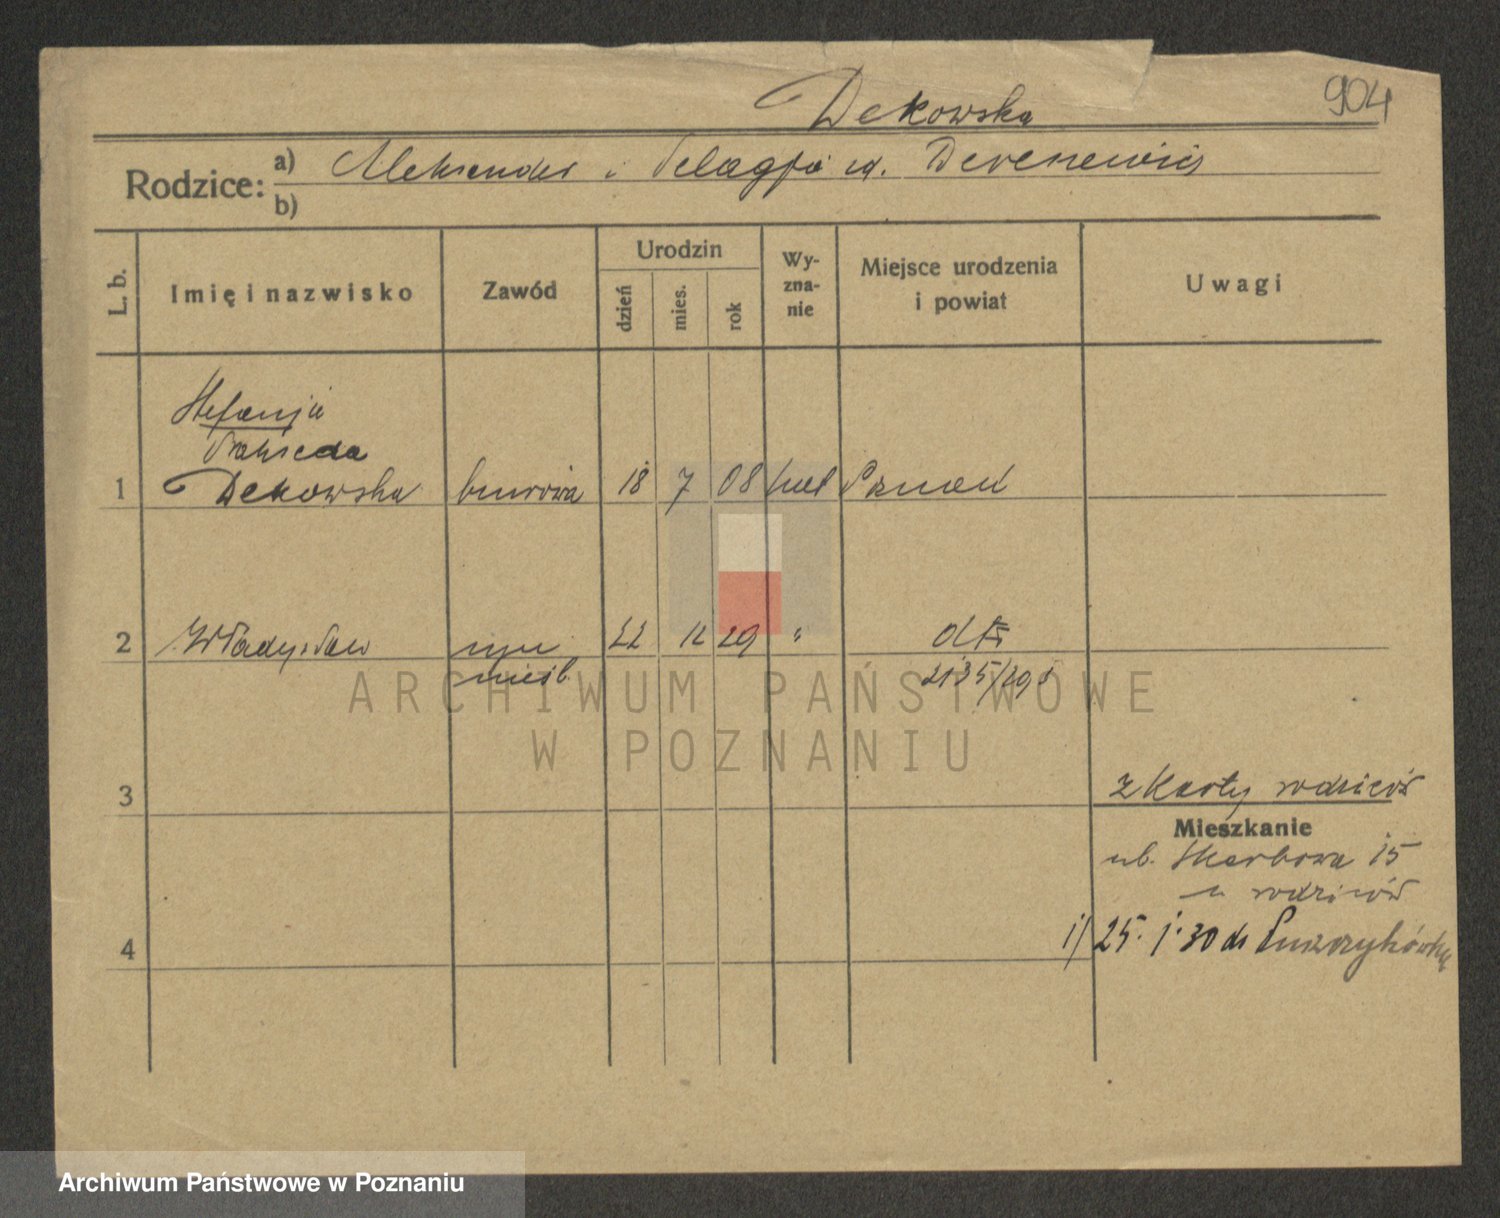 904
Dekowska
Rodzice: a) Aleksander i Pelagja ur. Derenewicz
b)
L. b. Imię i nazwisko Zawód Urodzin dzień mies. rok Wy-zna-nie Miejsce urodzenia i powiat Uwagi
Stefanja
Prakseda
1 Dekowska biurowa 18 7 08 kat Poznań
2 Władysław syn 22 12 29 " dto
nieśl. 2135/29
3
z karty rodziców
Mieszkanie
ul. Skarbowa 15
u rodziców
4 1) 25. 1. 30 do Puszczykówka
ARCHIWUM PAŃSTWOWE
W POZNANIU
Archiwum Państwowe w Poznaniu